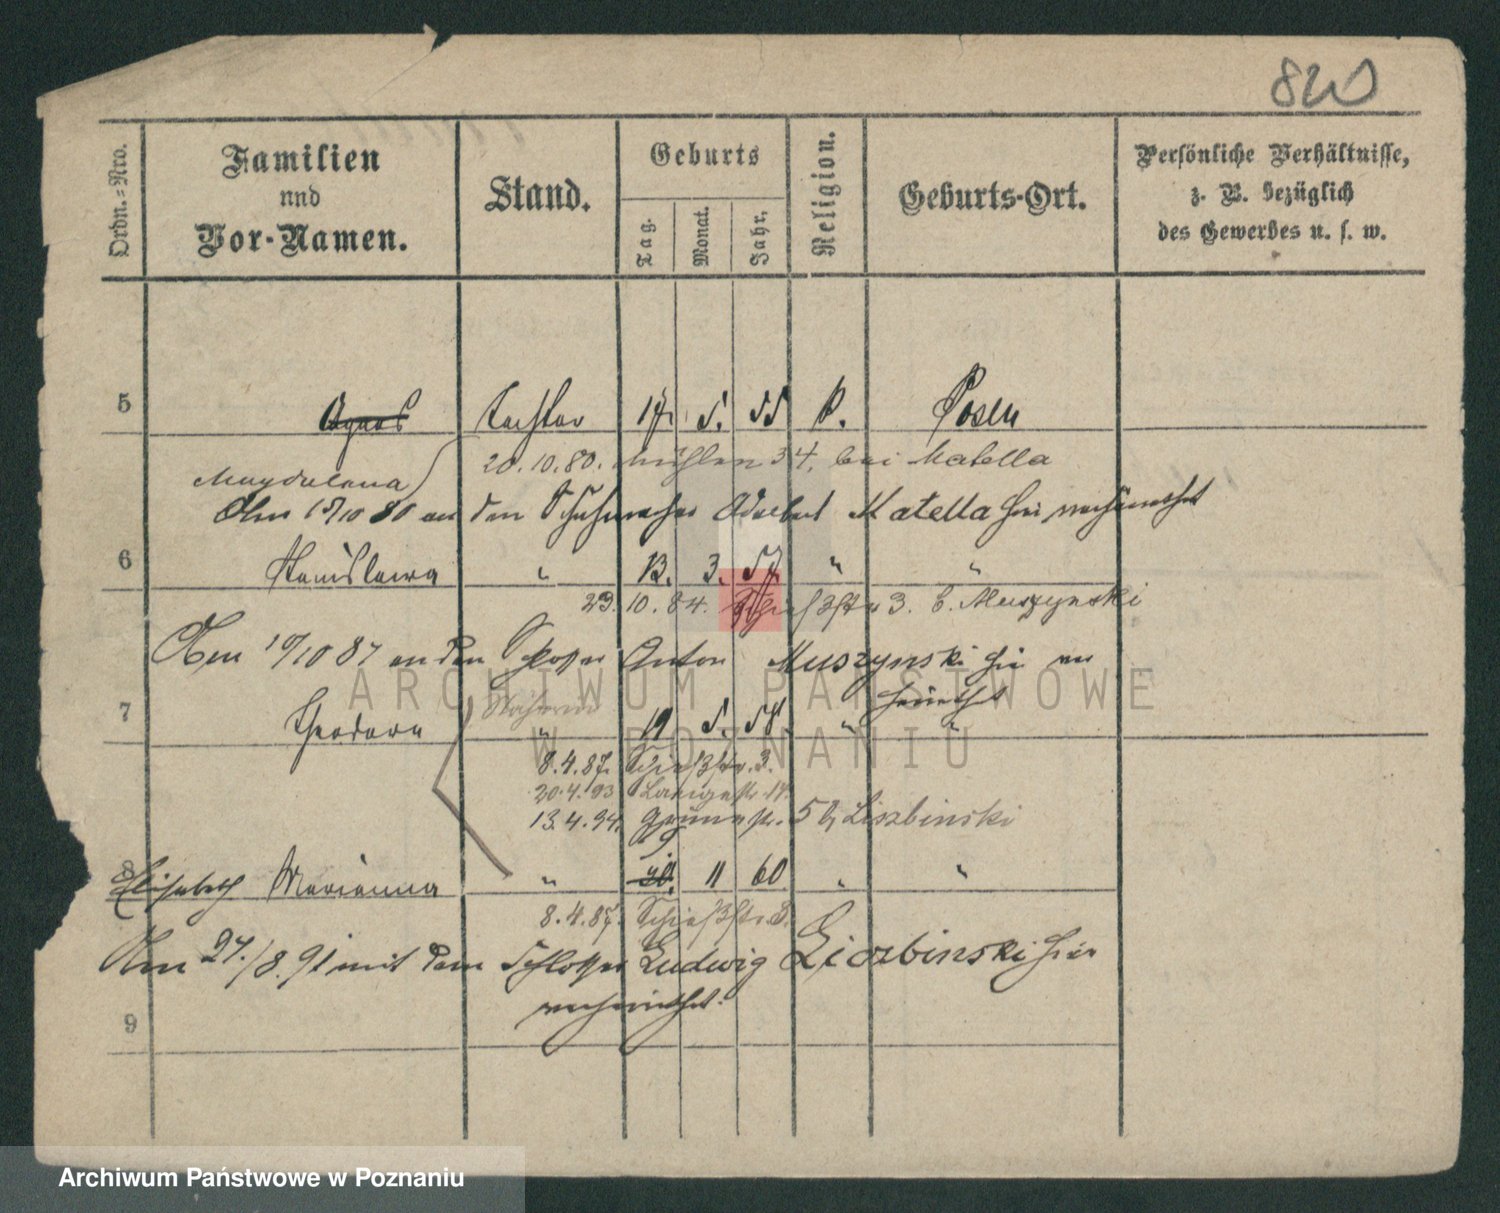 820
Ordn.=Nro.
Familien
und
Vor-Namen.
Stand.
Geburts
Tag.
Monat.
Jahr.
Religion.
Geburts-Ort.
Persönliche Verhältnisse,
z. B. bezüglich
des Gewerbes u. s. w.
5 Agnes Tochter 17. 5. 55 k. Posen
Magdalena 20.10.80. Mühlen 34, bei Matella
Am 19/10 80 an den Schuhmacher Adalbert Matella hier verheirathet
6 Stanislawa " 13. 3. 57 " "
23.10.84. Schießstr 3. b. Muszynski
Am 19/10 87 an den Anton Muszynski hier ver
heirathet
7 Theodora Näherin " 19 5. 58 " "
8.4.87. Schießstr. 3.
20.4.93 Langestr. 14.
13.4.94. Grünestr. 5 b/ Liszbinski
9
8 Elisabeth Marianna " 11 60 " "
8.4.87. Schießstr. 3.
Am 24./8.91 mit dem Schlosser Ludwig Liczbinski hier
verheirathet.
9
ARCHIWUM PAŃSTWOWE
W POZNANIU
Archiwum Państwowe w Poznaniu